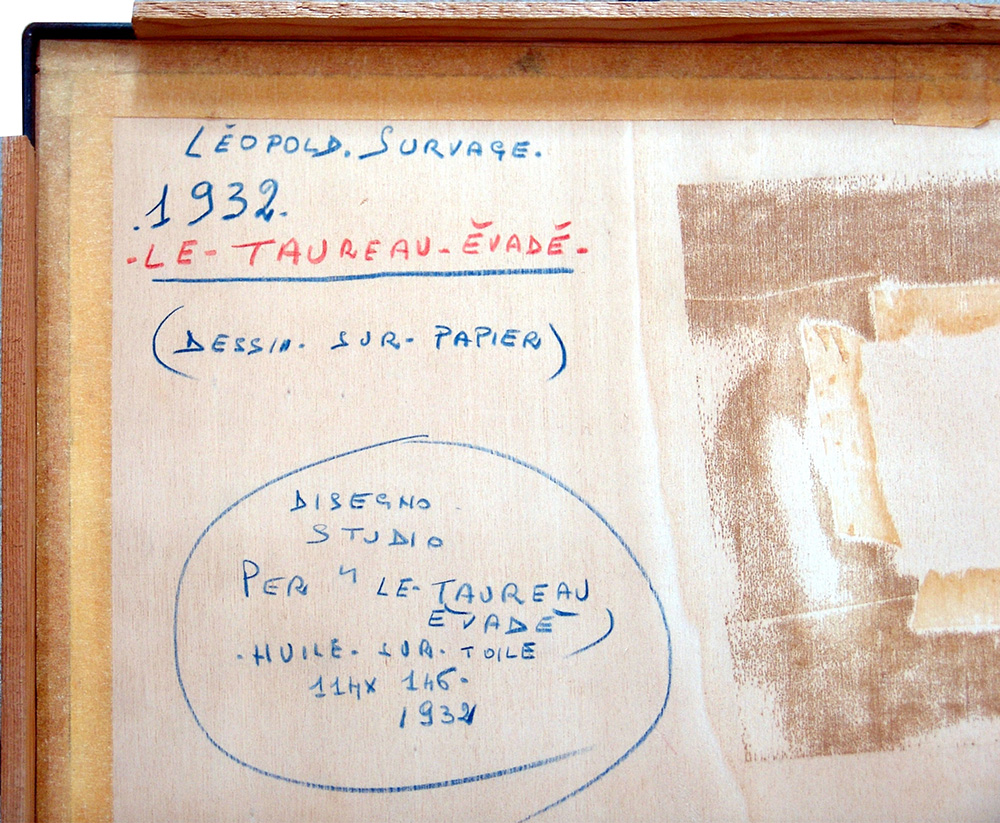 LÉOPOLD. SURVAGE.
.1932.
-LE- TAUREAU- ÉVADÉ-
(DESSIN. SUR- PAPIER)
DISEGNO
STUDIO
PER " LE- TAUREAU
ÉVADÉ )
-HUILE- SUR- TOILE
114X 146-
1932